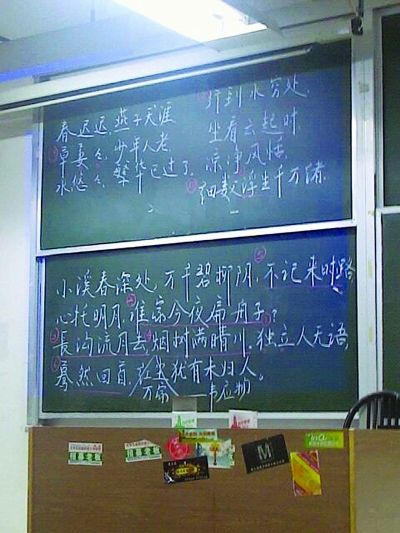 春迟迟,燕子天涯
草萋々,少年人老
水悠々,繁华已过了,
行到水穷处,
坐看云起时
凉净风恬,
细数浮生千万绪。
小溪春深处,万千碧柳阴,不记来时路
心托明月,谁家今夜扁舟子?
長沟流月去,烟树满晴川,独立人无语,
蓦然回首,红尘犹有未归人。
韦应物